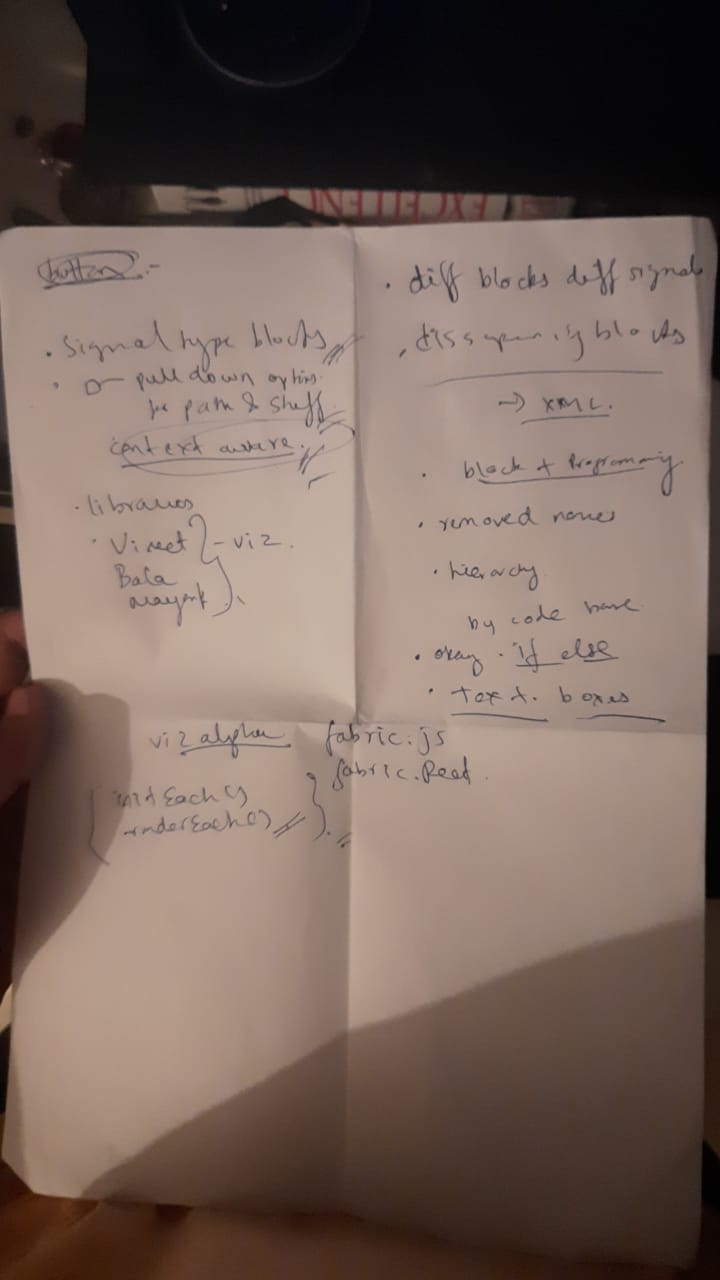 EXCELLENC
button :-
• Signal type blocks
• or pull down options
for path & stuff
context aware.
• libraries
• Vineet } - viz.
Bala
mayank
• diff blocks diff signals
• dissapearing blocks
→ XML.
• block & Programming
• removed names
• hierarchy
by code base
• okay • if else
• text. boxes
viz alpha fabric.js
fabric.Rect.
initEach()
renderEach()